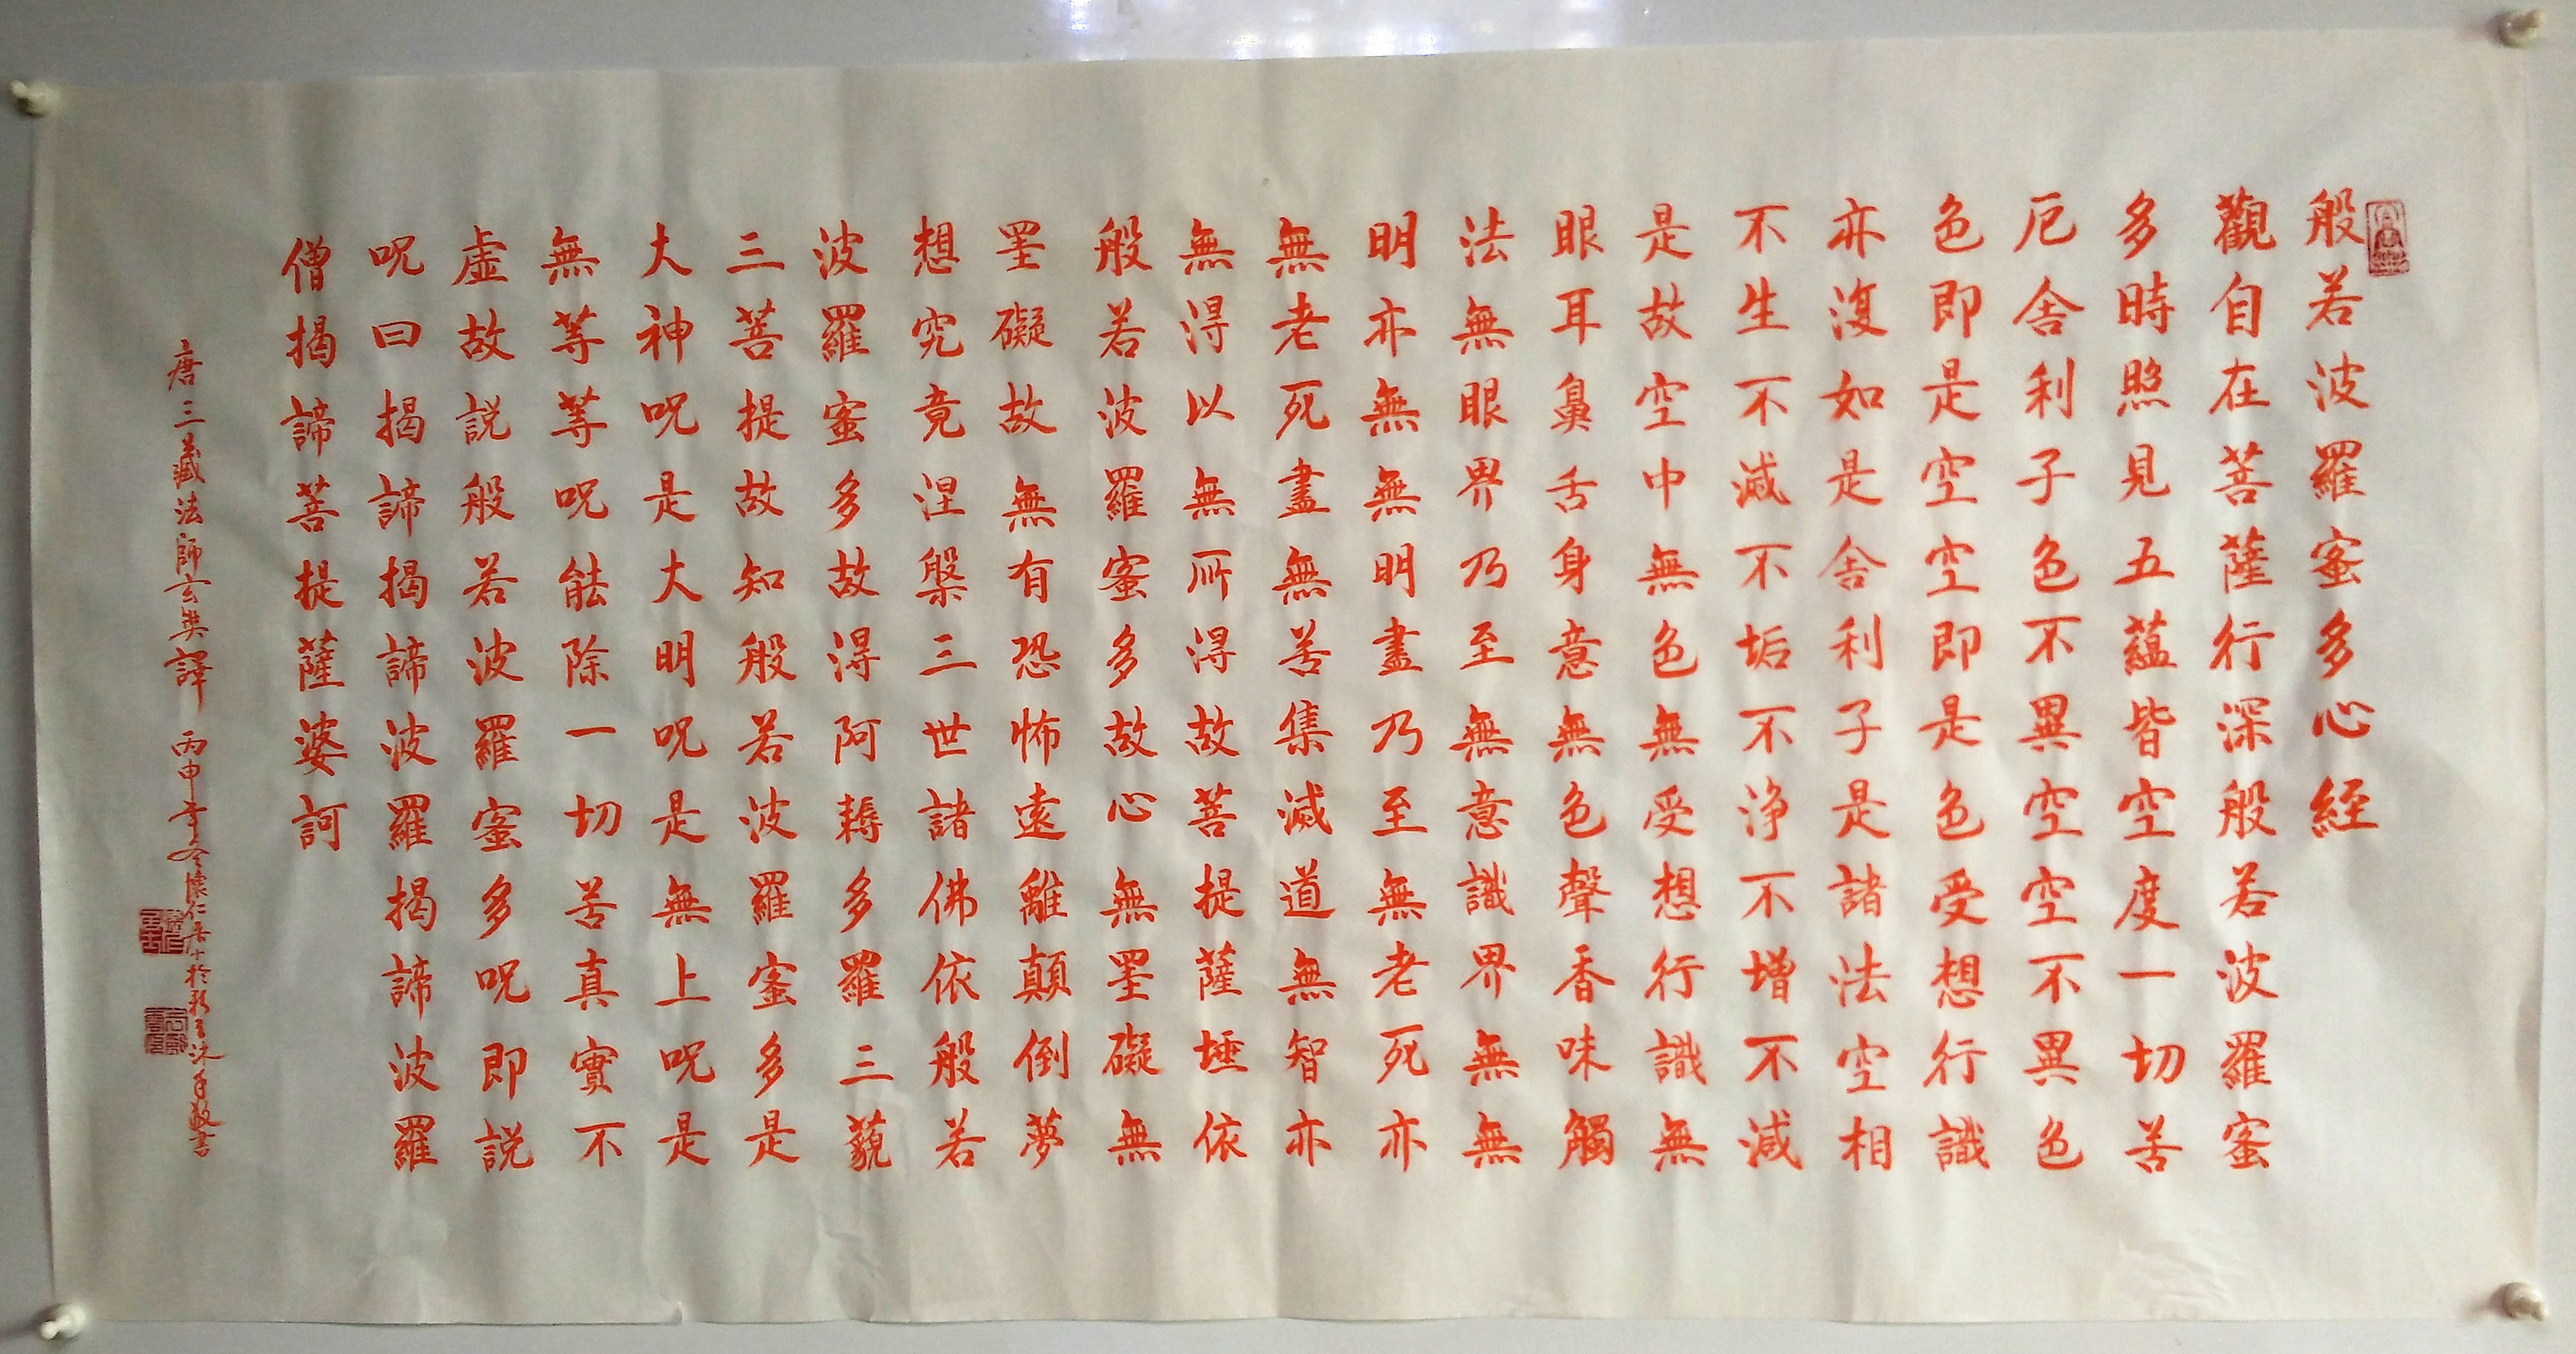 般若波羅蜜多心経
觀自在菩薩行深般若波羅蜜
多時照見五蘊皆空度一切苦
厄舍利子色不異空空不異色
色即是空空即是色受想行識
亦復如是舍利子是諸法空相
不生不滅不垢不淨不增不減
是故空中無色無受想行識無
眼耳鼻舌身意無色聲香味觸
法無眼界乃至無意識界無無
明亦無無明盡乃至無老死亦
無老死盡無苦集滅道無智亦
無得以無所得故菩提薩埵依
般若波羅蜜多故心無罣礙無
罣礙故無有恐怖遠離顛倒夢
想究竟涅槃三世諸佛依般若
波羅蜜多故得阿耨多羅三藐
三菩提故知般若波羅蜜多是
大神呪是大明呪是無上呪是
無等等呪能除一切苦真實不
虛故説般若波羅蜜多呪即説
呪曰揭諦揭諦波羅揭諦波羅
僧揭諦菩提薩婆訶
唐三藏法師玄奘譯 丙申年冬懷仁居士於 沐手敬書